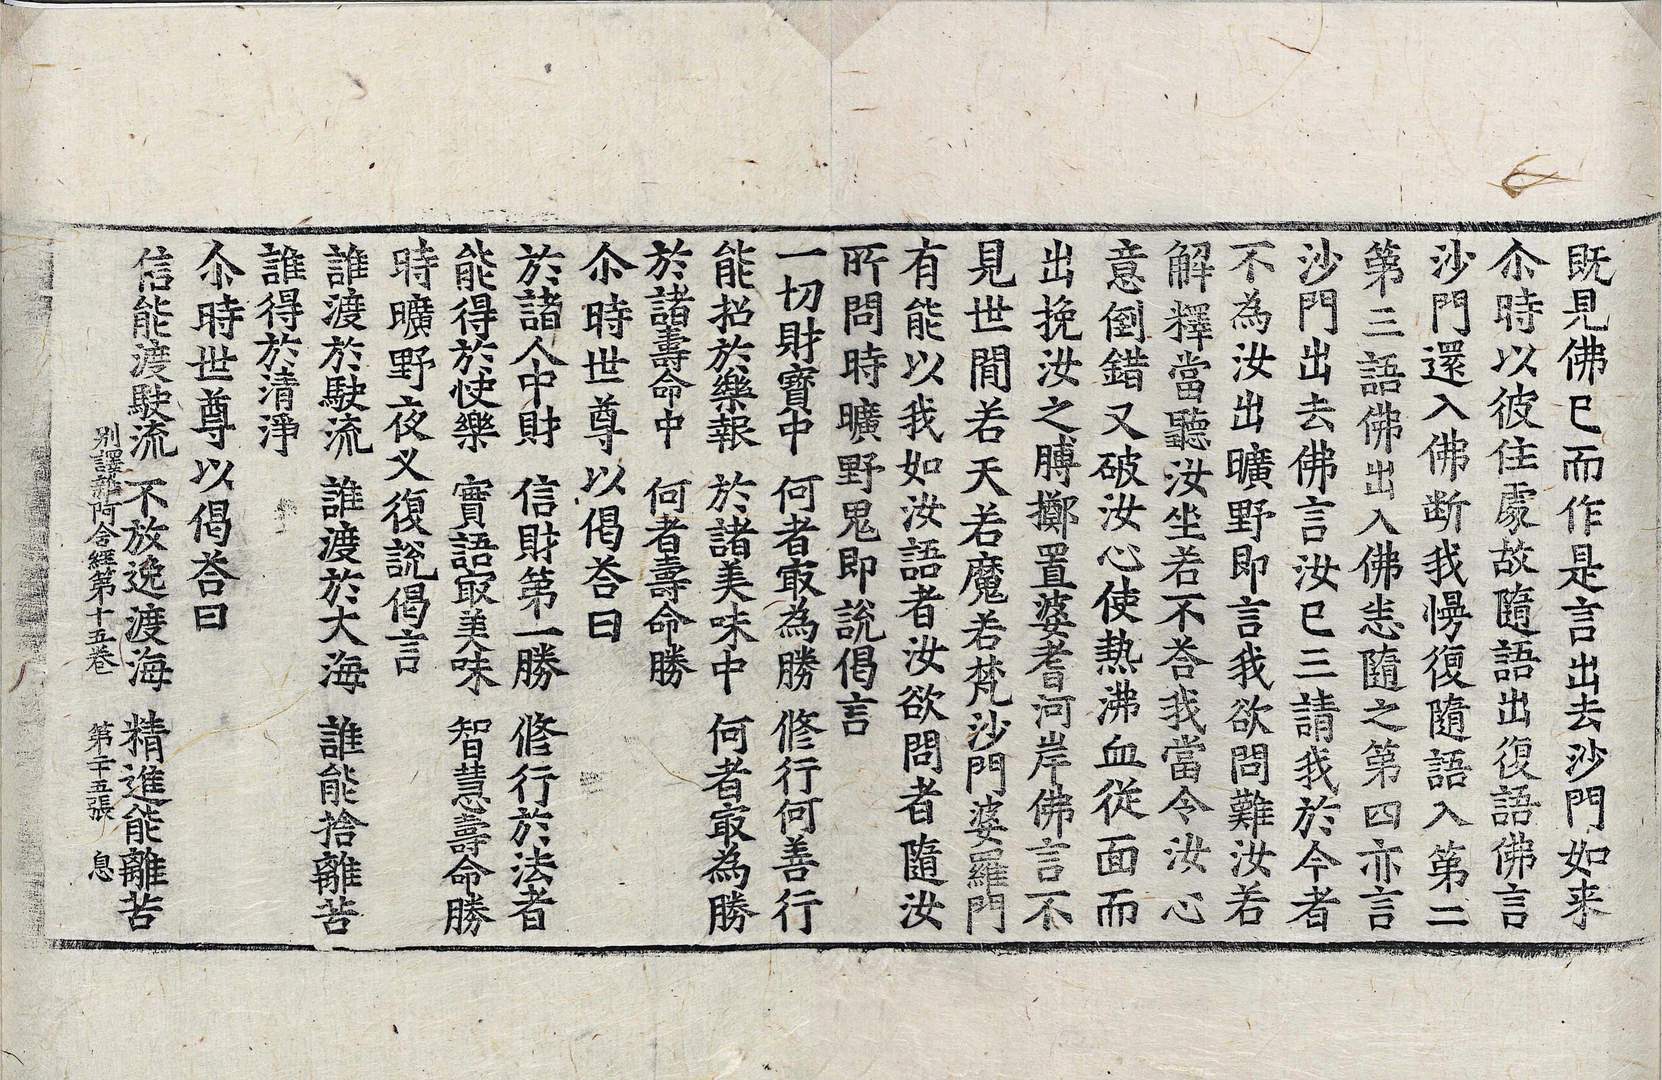 既見佛已而作是言出去沙門如来
尒時以彼住處故隨語出復語佛言
沙門還入佛断我慢復隨語入第二
第三語佛出入佛恙隨之第四亦言
沙門出去佛言汝已三請我於今者
不為汝出曠野即言我欲問難汝若
解釋當聽汝坐若不荅我當令汝心
意倒錯又破汝心使热沸血從面而
出挽汝之膊擲置婆耆河岸佛言不
見世間若天若魔若梵沙門婆羅門
有能以我如汝語者汝欲問者隨汝
所問時曠野鬼即說偈言
一切財寶中　何者㝡為勝　修行何善行
能招於樂報　於諸美味中　何者㝡為勝
於諸壽命中　何者壽命勝
尒時世尊以偈荅曰
於諸人中財　信財第一勝　修行於法者
能得於快樂　實語㝡美味　智慧壽命勝
時曠野夜叉復說偈言
誰渡於駛流　誰渡於大海　誰能捨離苦
誰得於清淨
尒時世尊以偈荅曰
信能渡駛流　不放逸渡海　精進能離苦
別譯雜阿含經第十五卷　第二十五張　息